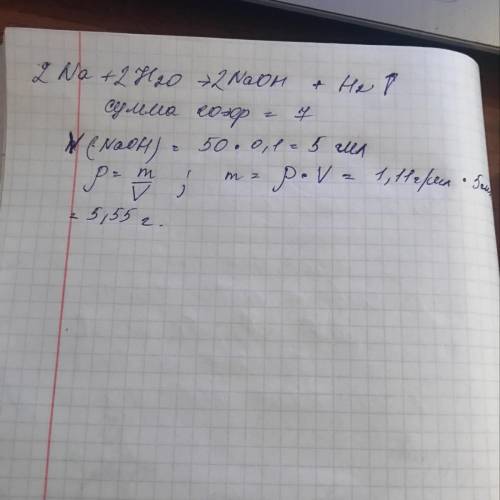 2Na + 2H2O → 2NaOH + H2↑
сумма коэф = 7
V(NaOH) = 50 • 0,1 = 5 мл
ρ = m/V ; m = ρ • V = 1,11 г/мл • 5мл
= 5,55 г.